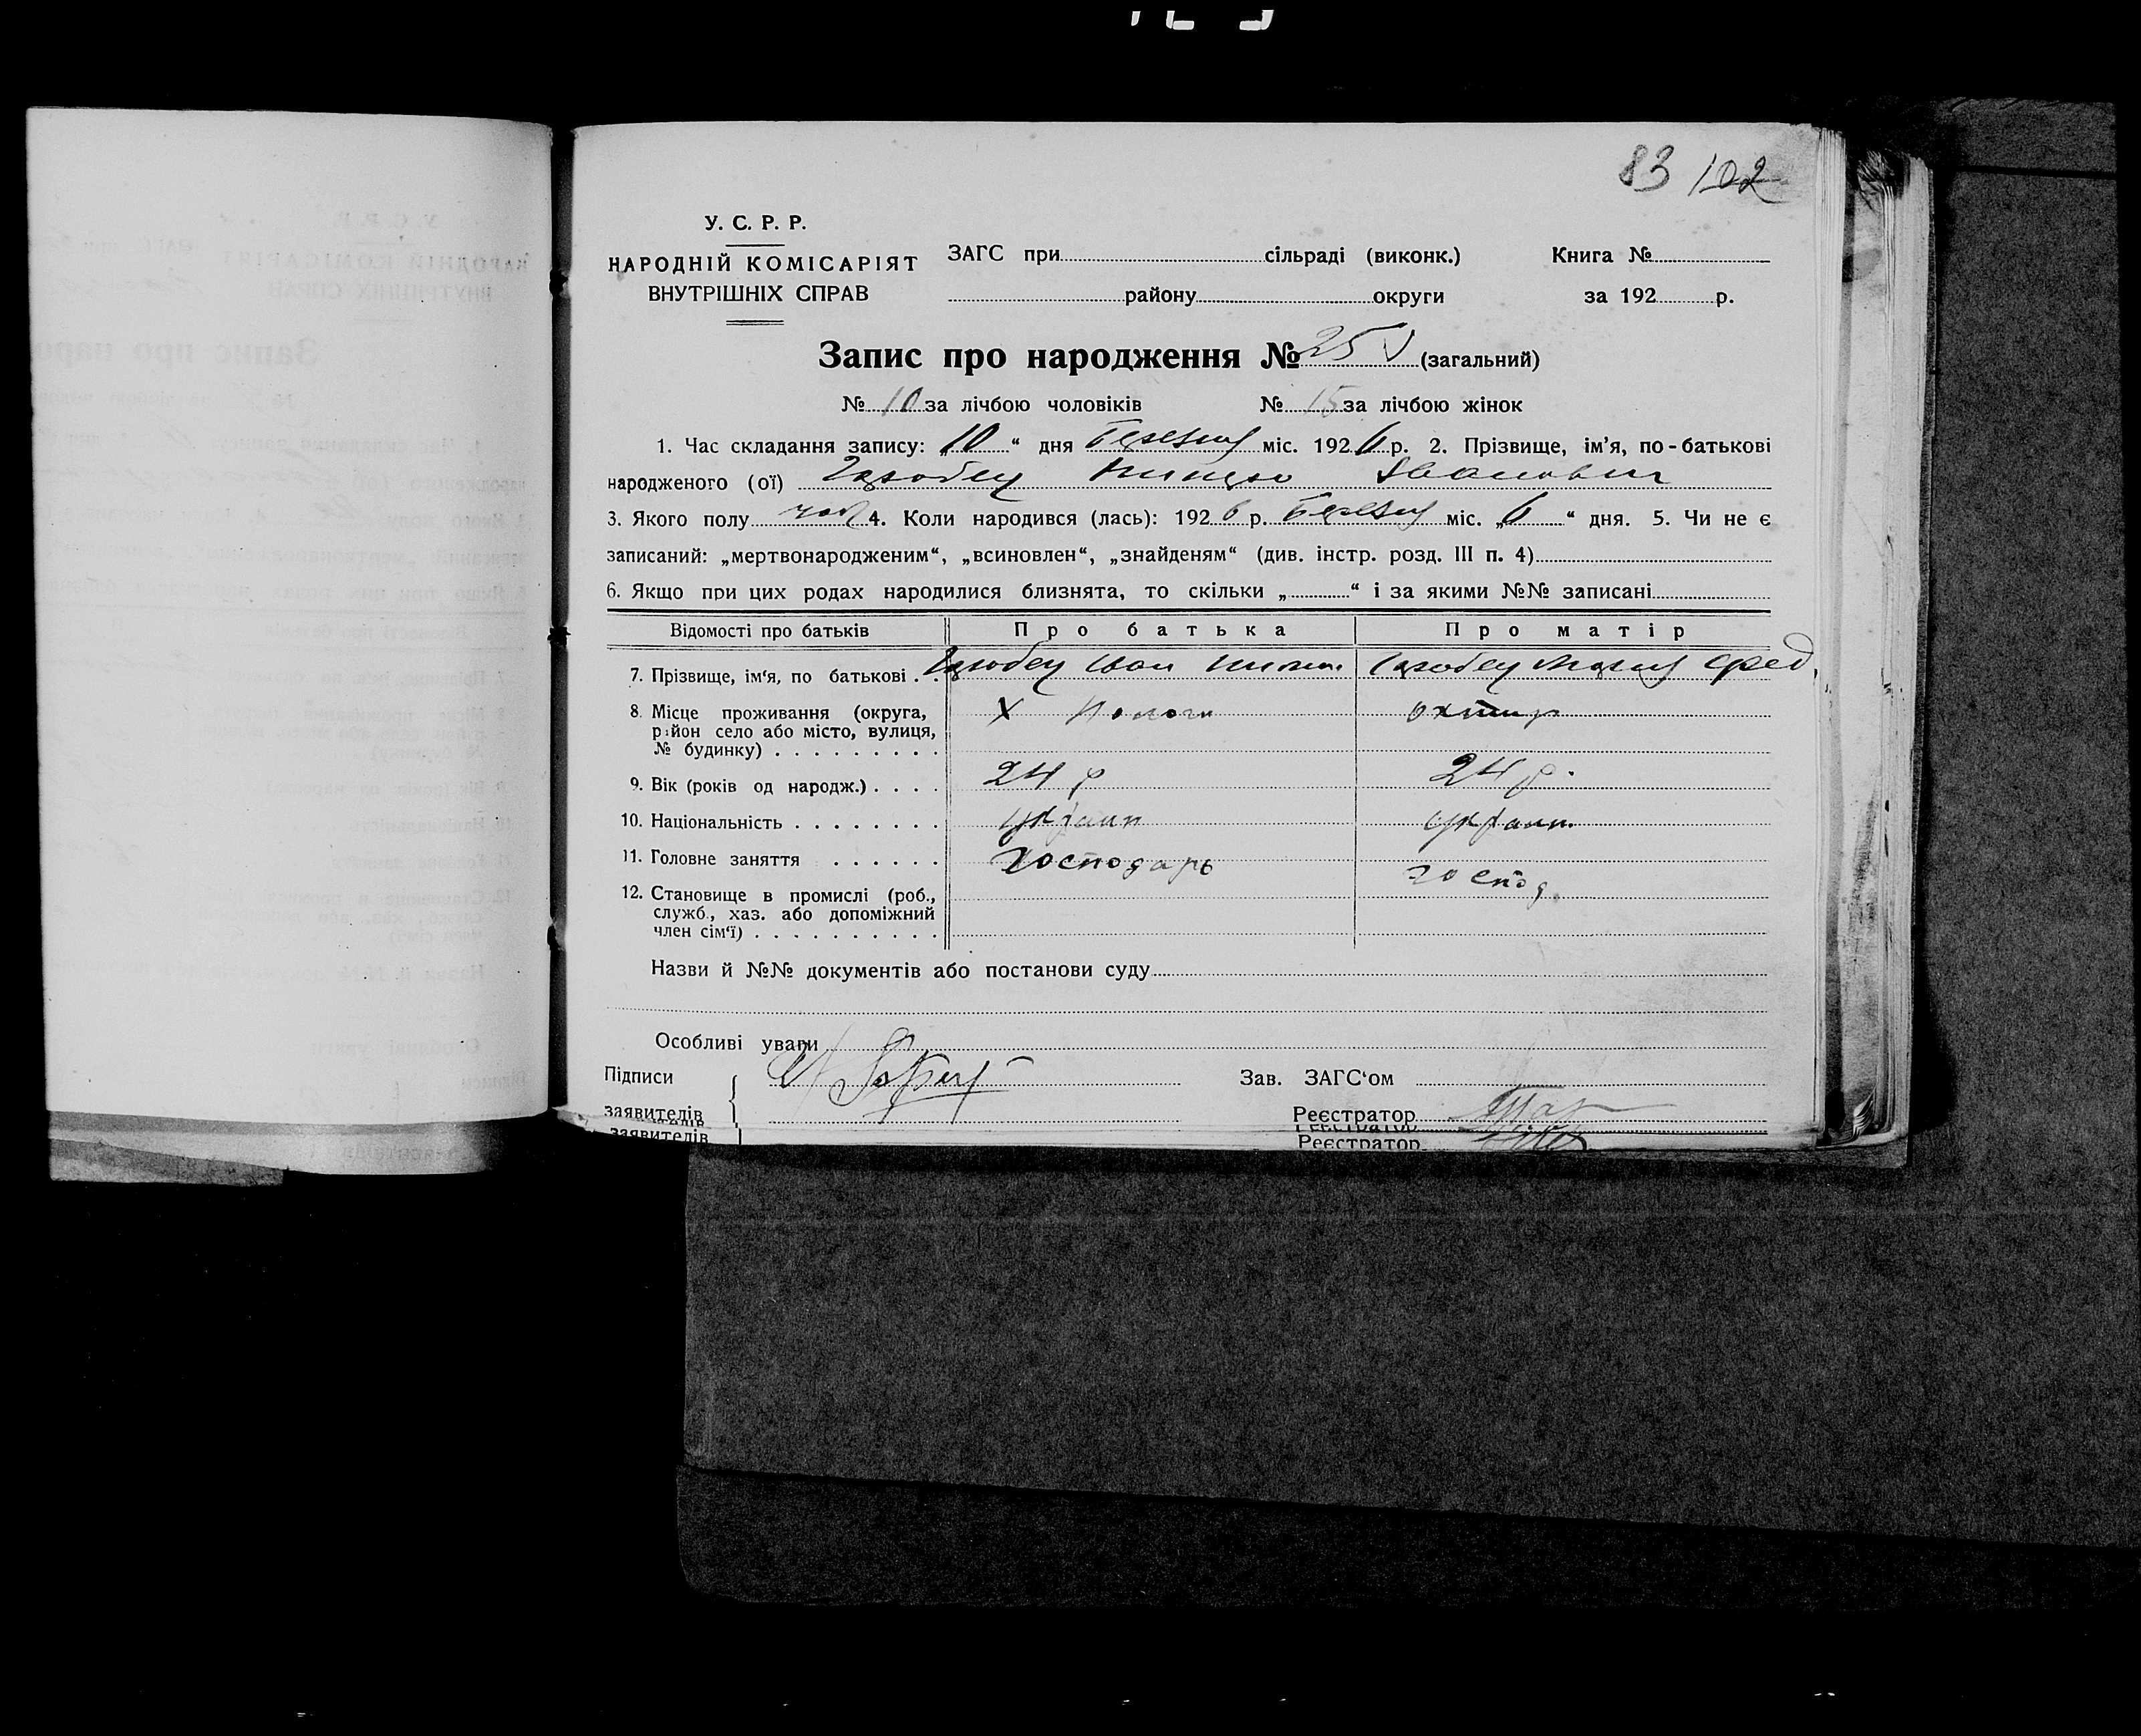 83 102
У. С. Р. Р.
НАРОДНІЙ КОМІСАРІЯТ
ВНУТРІШНІХ СПРАВ
ЗАГС при сільраді (виконк.) Книга №
району округи за 192 р.
Запис про народження № 25 (загальний)
№ 10 за лічбою чоловіків № 15 за лічбою жінок
1. Час складання запису: „10“ дня Березня міс. 1926 р. 2. Прізвище, ім'я, по-батькові
народженого (ої) Иванович
3. Якого полу чол 4. Коли народився (лась): 1926 р. Березня міс. „6“ дня. 5. Чи не є
записаний: „мертвонародженим“, „всиновлен“, „знайденям“ (див. інстр. розд. III п. 4)
6. Якщо при цих родах народилися близнята, то скільки „ “ і за якими №№ записані
Відомості про батьків Про батька Про матір
7. Прізвище, ім'я, по батькові Иван
8. Місце проживання (округа, район село або місто, вулиця, № будинку) Х
9. Вік (років од народж.) 24 р 24 р.
10. Національність україн україн.
11. Головне заняття господарь господ.
12. Становище в промислі (роб., служб., хаз. або допоміжний член сім'ї)
Назви й №№ документів або постанови суду
Особливі уваги
Підписи
заявителів
Зав. ЗАГС'ом
Реєстратор
заявителів
Реєстратор